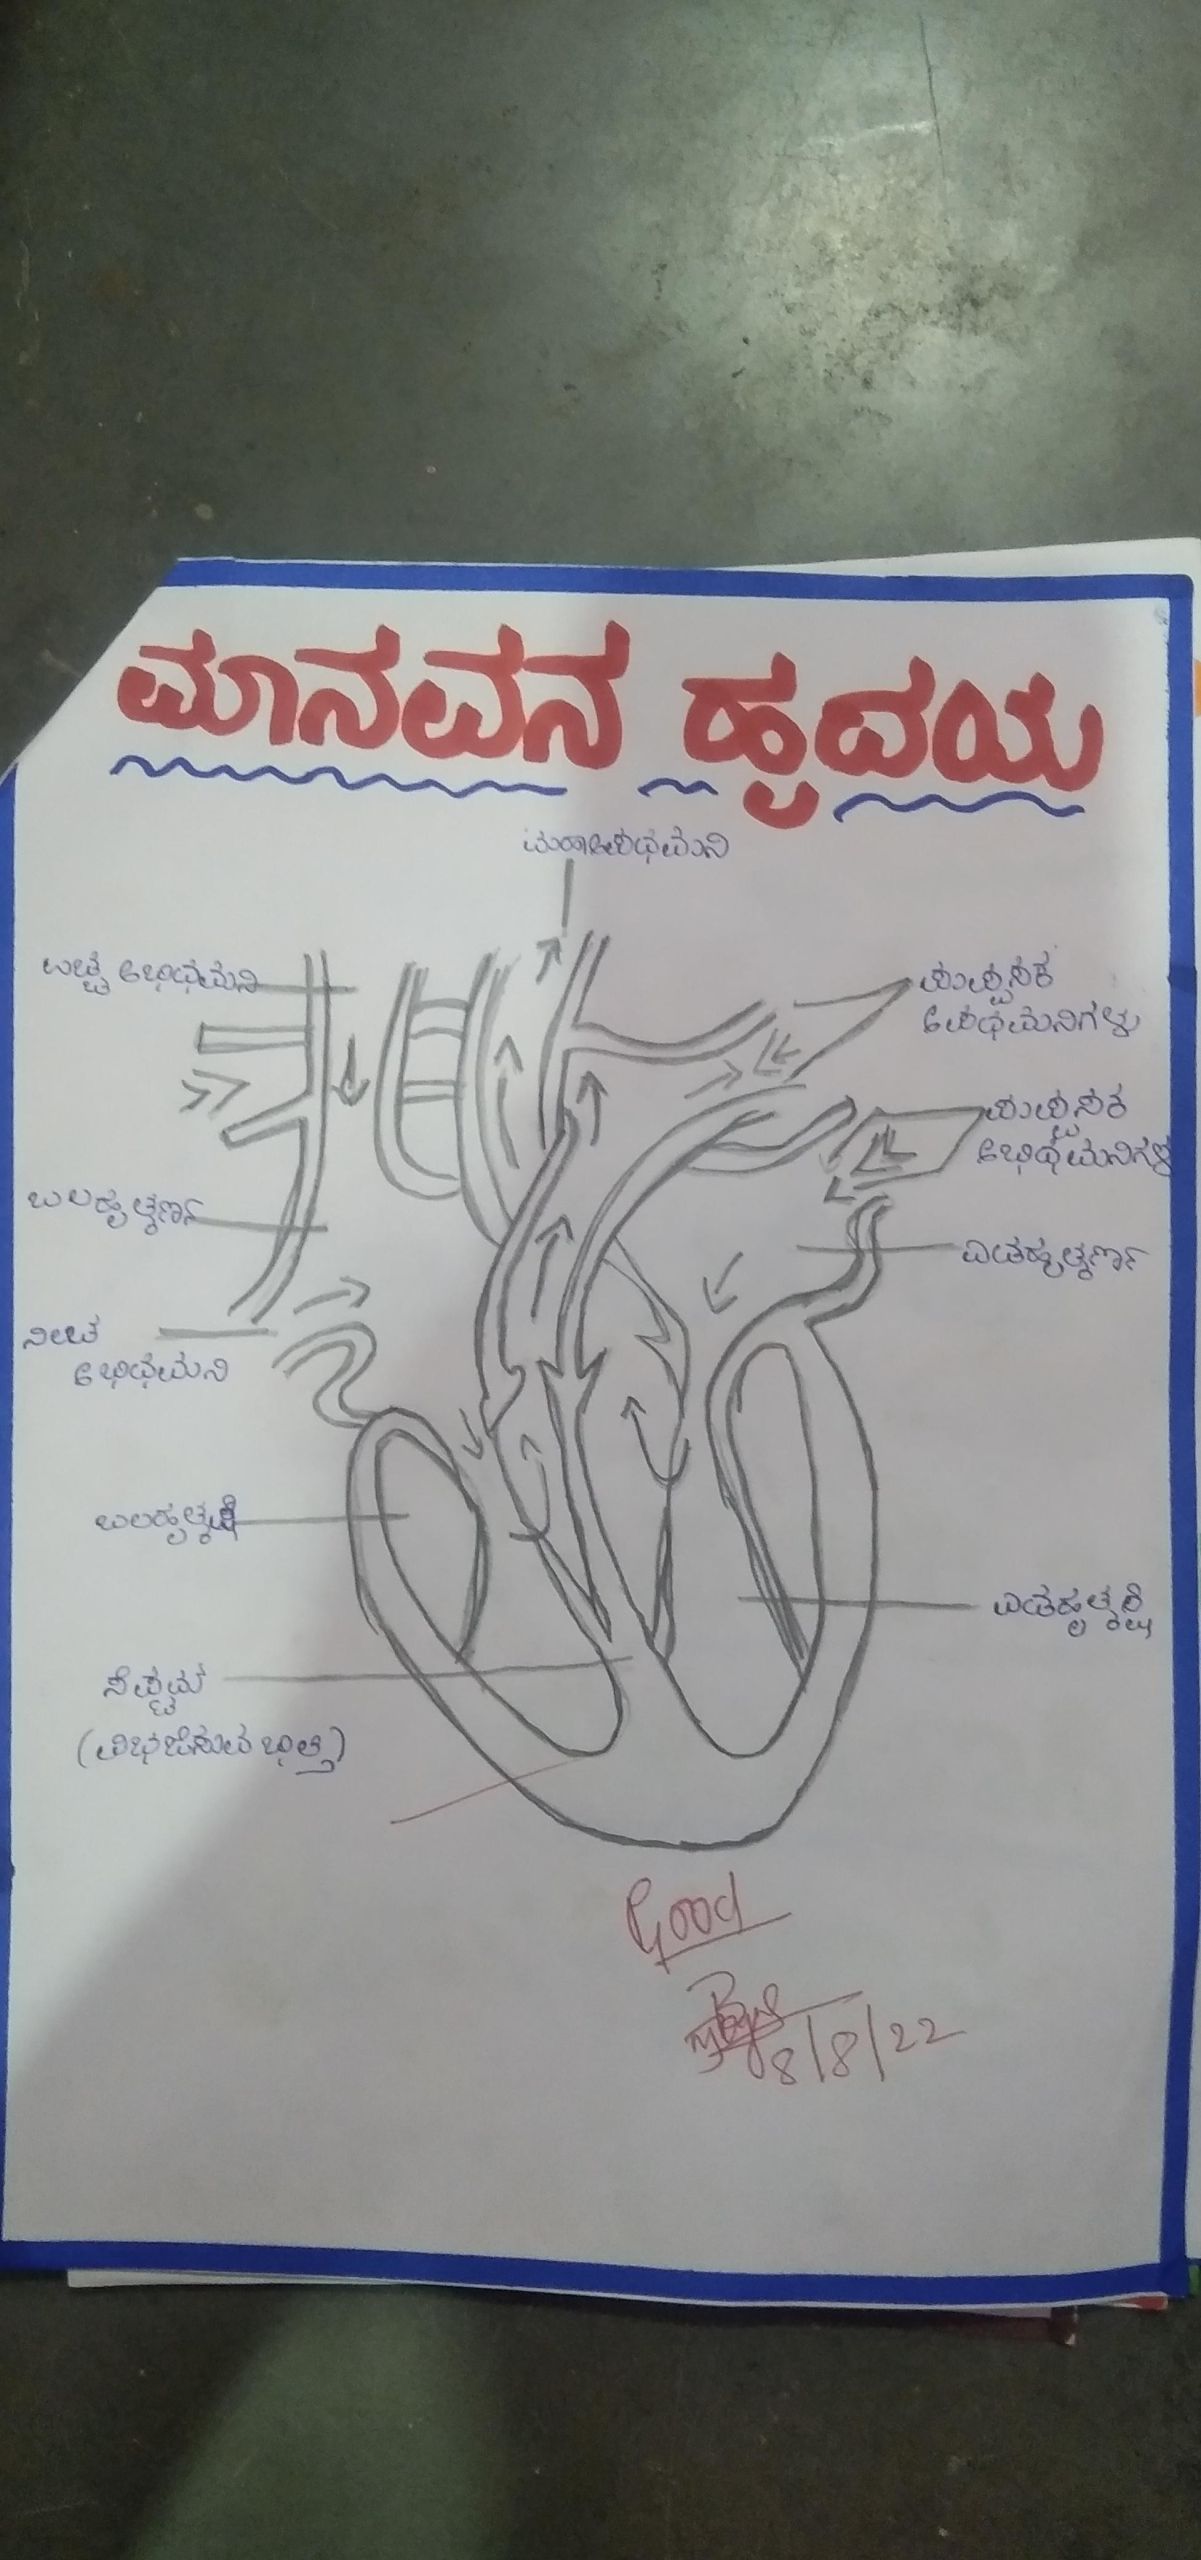 ಮಾನವನ ಹೃದಯ
ಮಹಾಅಪಧಮನಿ
ಉಚ್ಛ ಅಭಿಧಮನಿ
ಪುಪ್ಪುಸಕ
ಅಪಧಮನಿಗಳು
ಪುಪ್ಪುಸಕ
ಅಭಿಧಮನಿಗಳು
ಬಲಹೃತ್ಕರ್ಣ
ಎಡಹೃತ್ಕರ್ಣ
ನೀಚ
ಅಭಿಧಮನಿ
ಬಲಹೃತ್ಕುಕ್ಷಿ
ಎಡಹೃತ್ಕುಕ್ಷಿ
ಸೆಪ್ಟಮ್
(ವಿಭಜಿಸುವ ಭಿತ್ತಿ)
Good
8/8/22